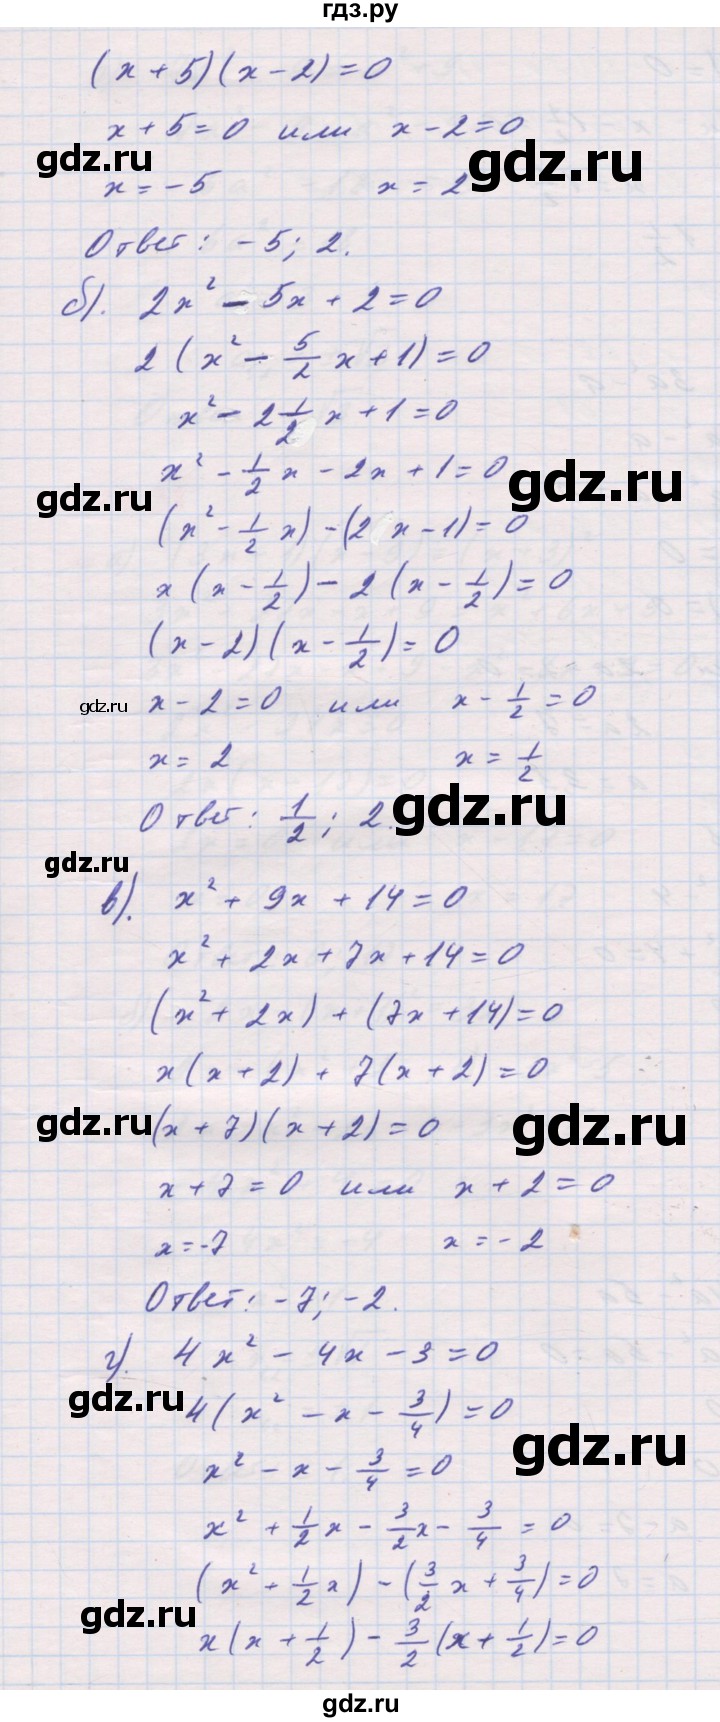 гдз.ру
(x + 5)(x - 2) = 0
x + 5 = 0 или x - 2 = 0
gdz.ru gdz.ru
x = - 5 x = 2
Ответ: - 5; 2.
б). 2x² - 5x + 2 = 0
2 (x² - 5/2 x + 1) = 0
x² - 2 1/2 x + 1 = 0
x² - 1/2 x - 2x + 1 = 0
gdz.ru gdz.ru
(x² - 1/2 x) - (2 x - 1) = 0
x (x - 1/2) - 2 (x - 1/2) = 0
(x - 2)(x - 1/2) = 0
gdz.ru x - 2 = 0 или x - 1/2 = 0
x = 2 x = 1/2
Ответ: 1/2; 2. gdz.ru
gdz.ru
в). x² + 9x + 14 = 0
x² + 2x + 7x + 14 = 0
(x² + 2x) + (7x + 14) = 0
x (x + 2) + 7 (x + 2) = 0
gdz.ru (x + 7)(x + 2) = 0 gdz.ru
x + 7 = 0 или x + 2 = 0
x = -7 x = - 2
Ответ: - 7; - 2.
г). 4x² - 4x - 3 = 0
gdz.ru 4 (x² - x - 3/4) = 0
gdz.ru
x² - x - 3/4 = 0
x² + 1/2 x - 3/2 x - 3/4 = 0
(x² + 1/2 x) - (3/2 x + 3/4) = 0
gdz.ru
x (x + 1/2) - 3/2 (x + 1/2) = 0
gdz.ru
gdz.ru